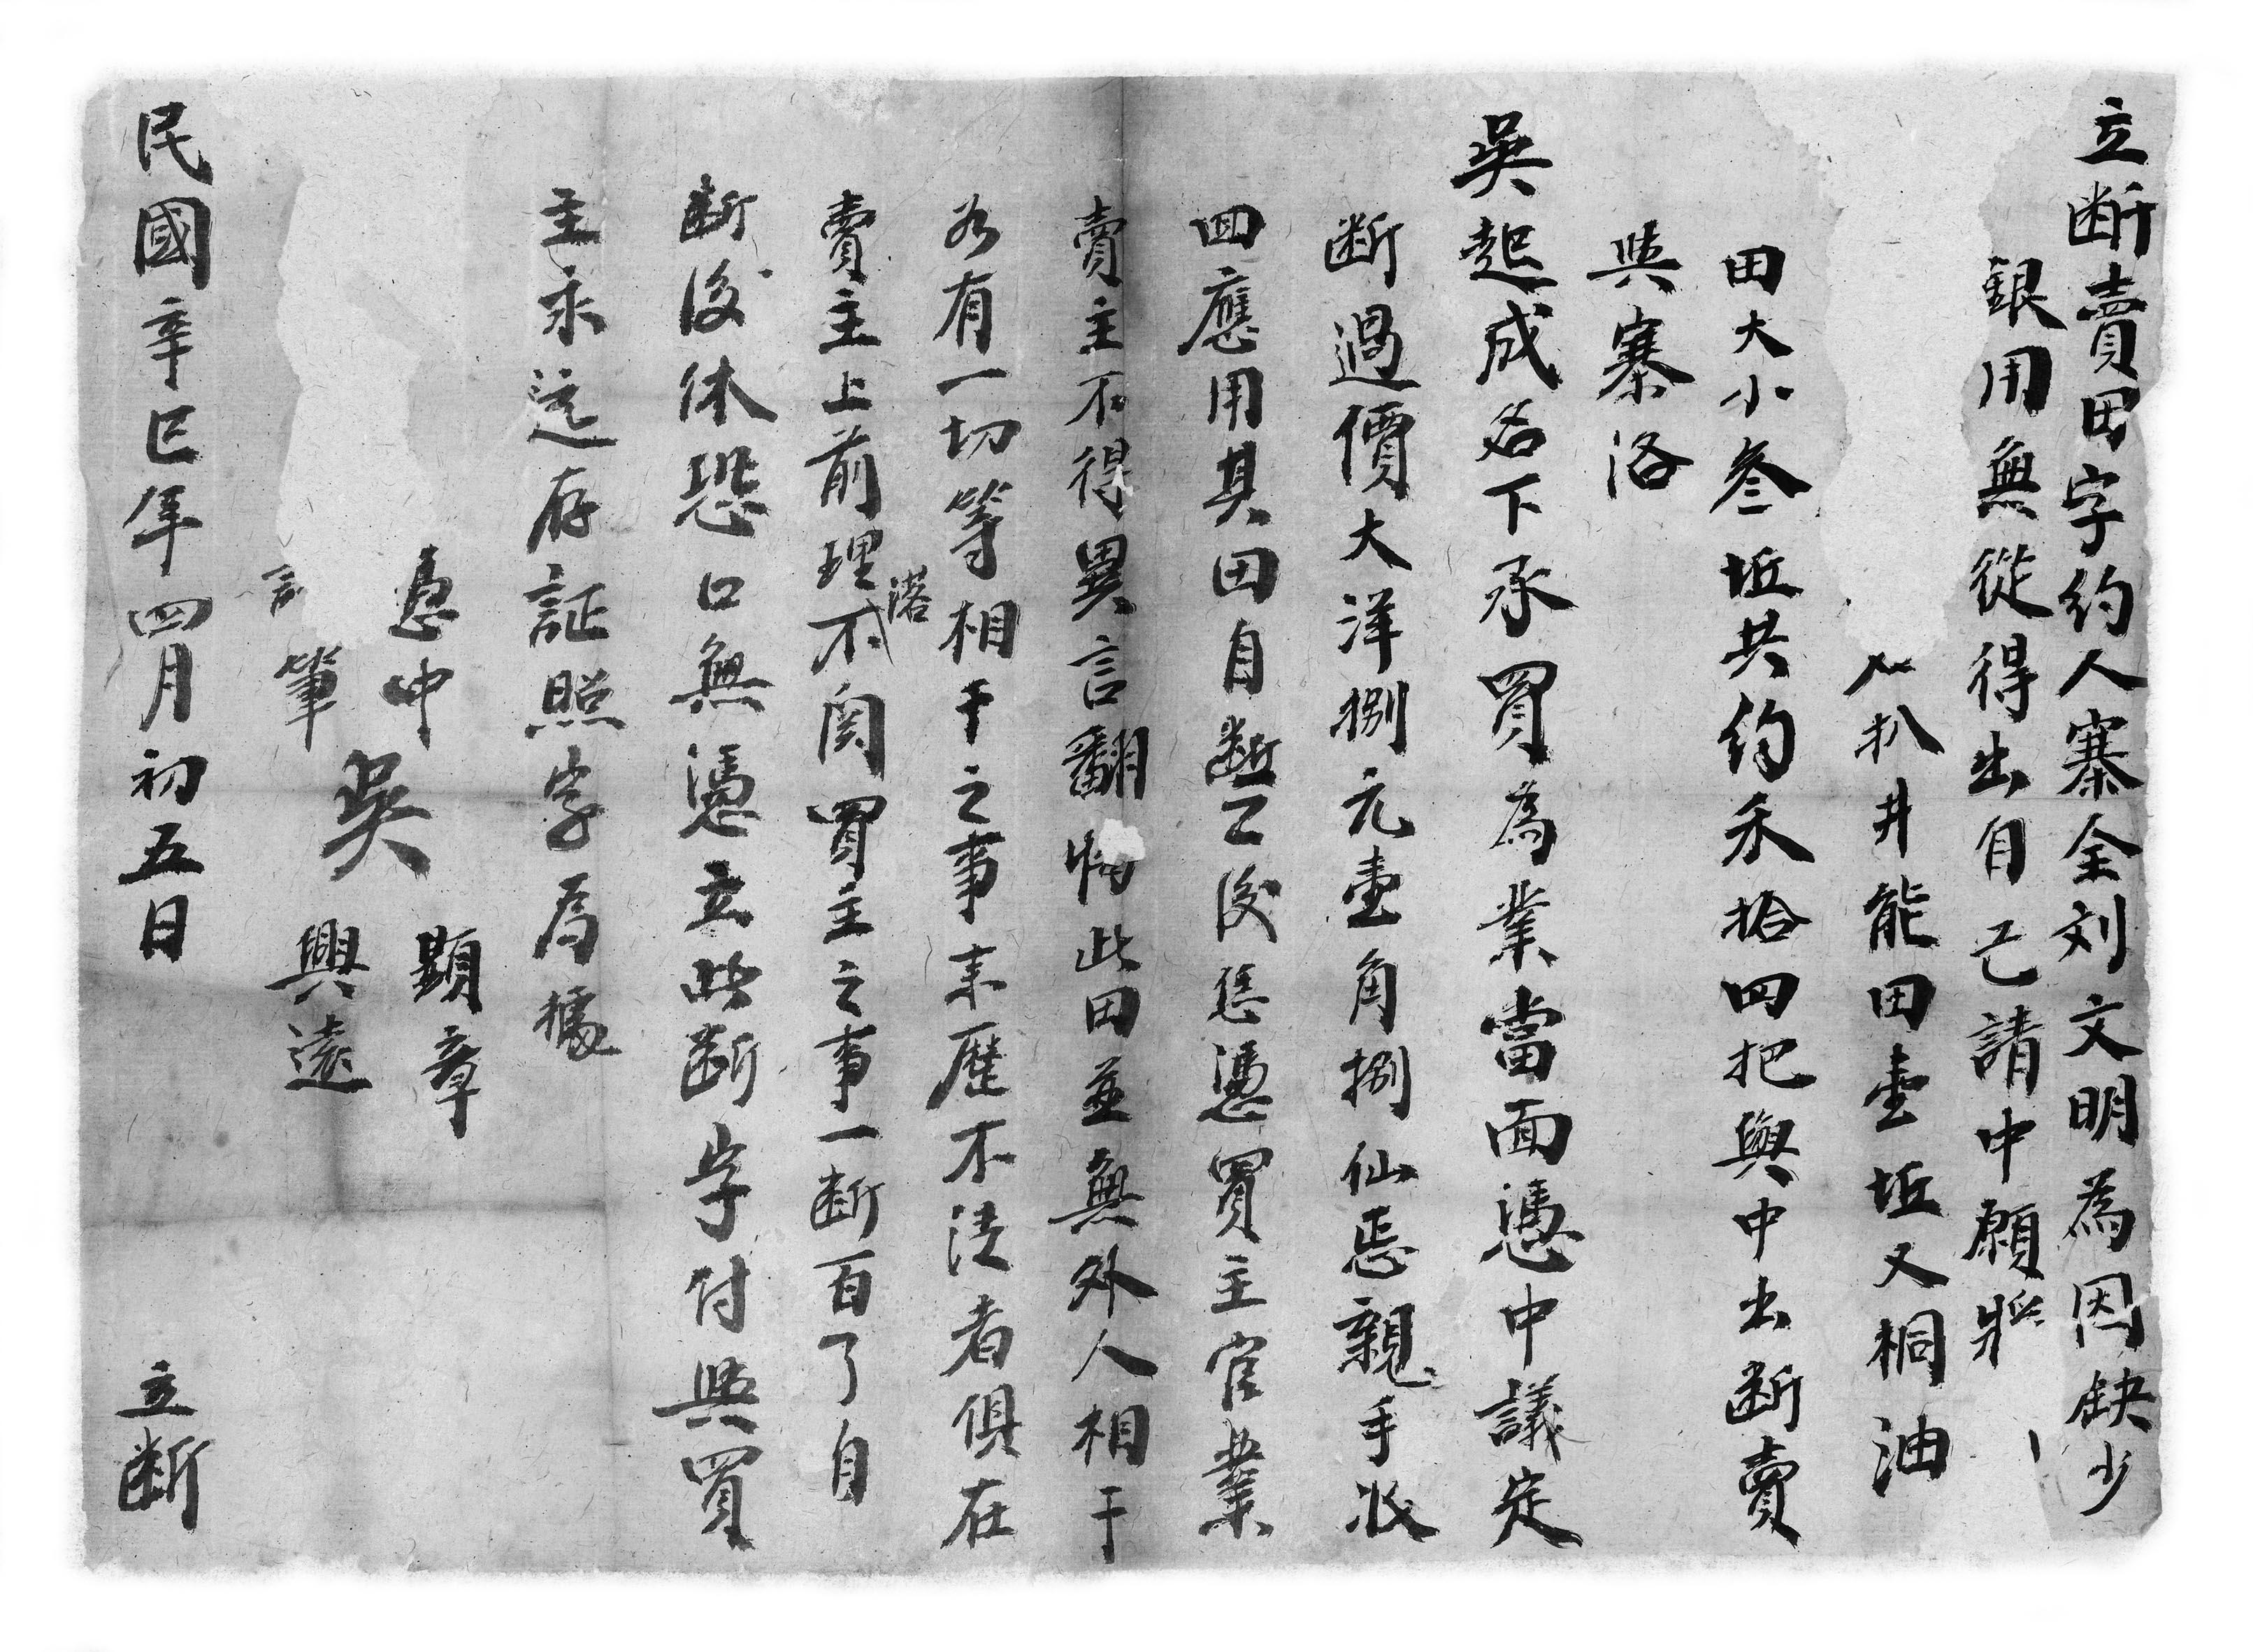 立断賣田字約人寨全刘文明為因缺少
銀用無從得出自己請中願將
扒井能田壹坵又桐油
田大小叁坵共約禾拾四把與中出断賣
與寨洛
吳起成名下承買為業當面憑中議定
断過價大洋捌元壹角捌仙恁親手收
回應用其田自断已後恁憑買主官業
賣主不得異言翻悔此田並無外人相干
若有一切等相干之事来歷不清者俱在
賣主上前理落不関買主之事一断百了自
断後休恐口無憑立此断字付與買
主永远存証照字為據
憑中 吳 顕章
筆 興遠
民國辛巳年四月初五日 立断